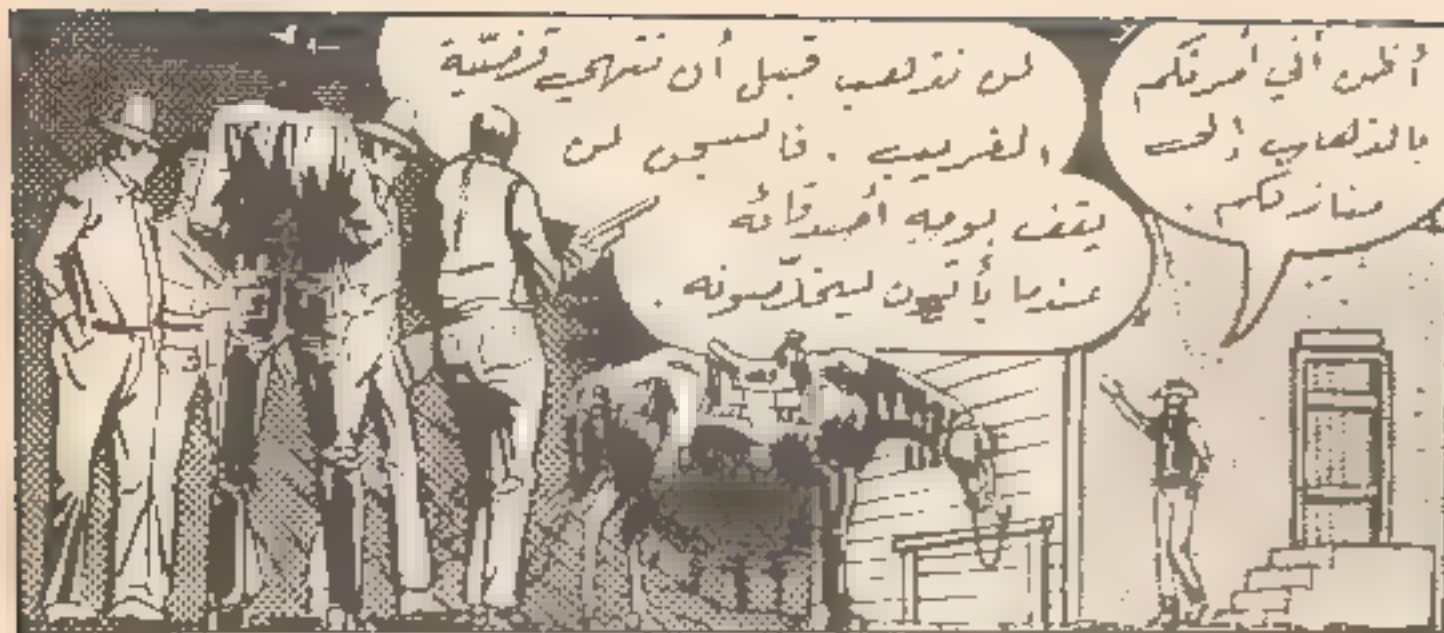 أظن أني أمرتكم
بالذهاب إلى
منازلكم .
لن نذهب قبل أن تنتهي قضيّة
الغريب . فالسجن لن
يقف بوجه أصدقائه
عندما يأتون ليخلّصونه .